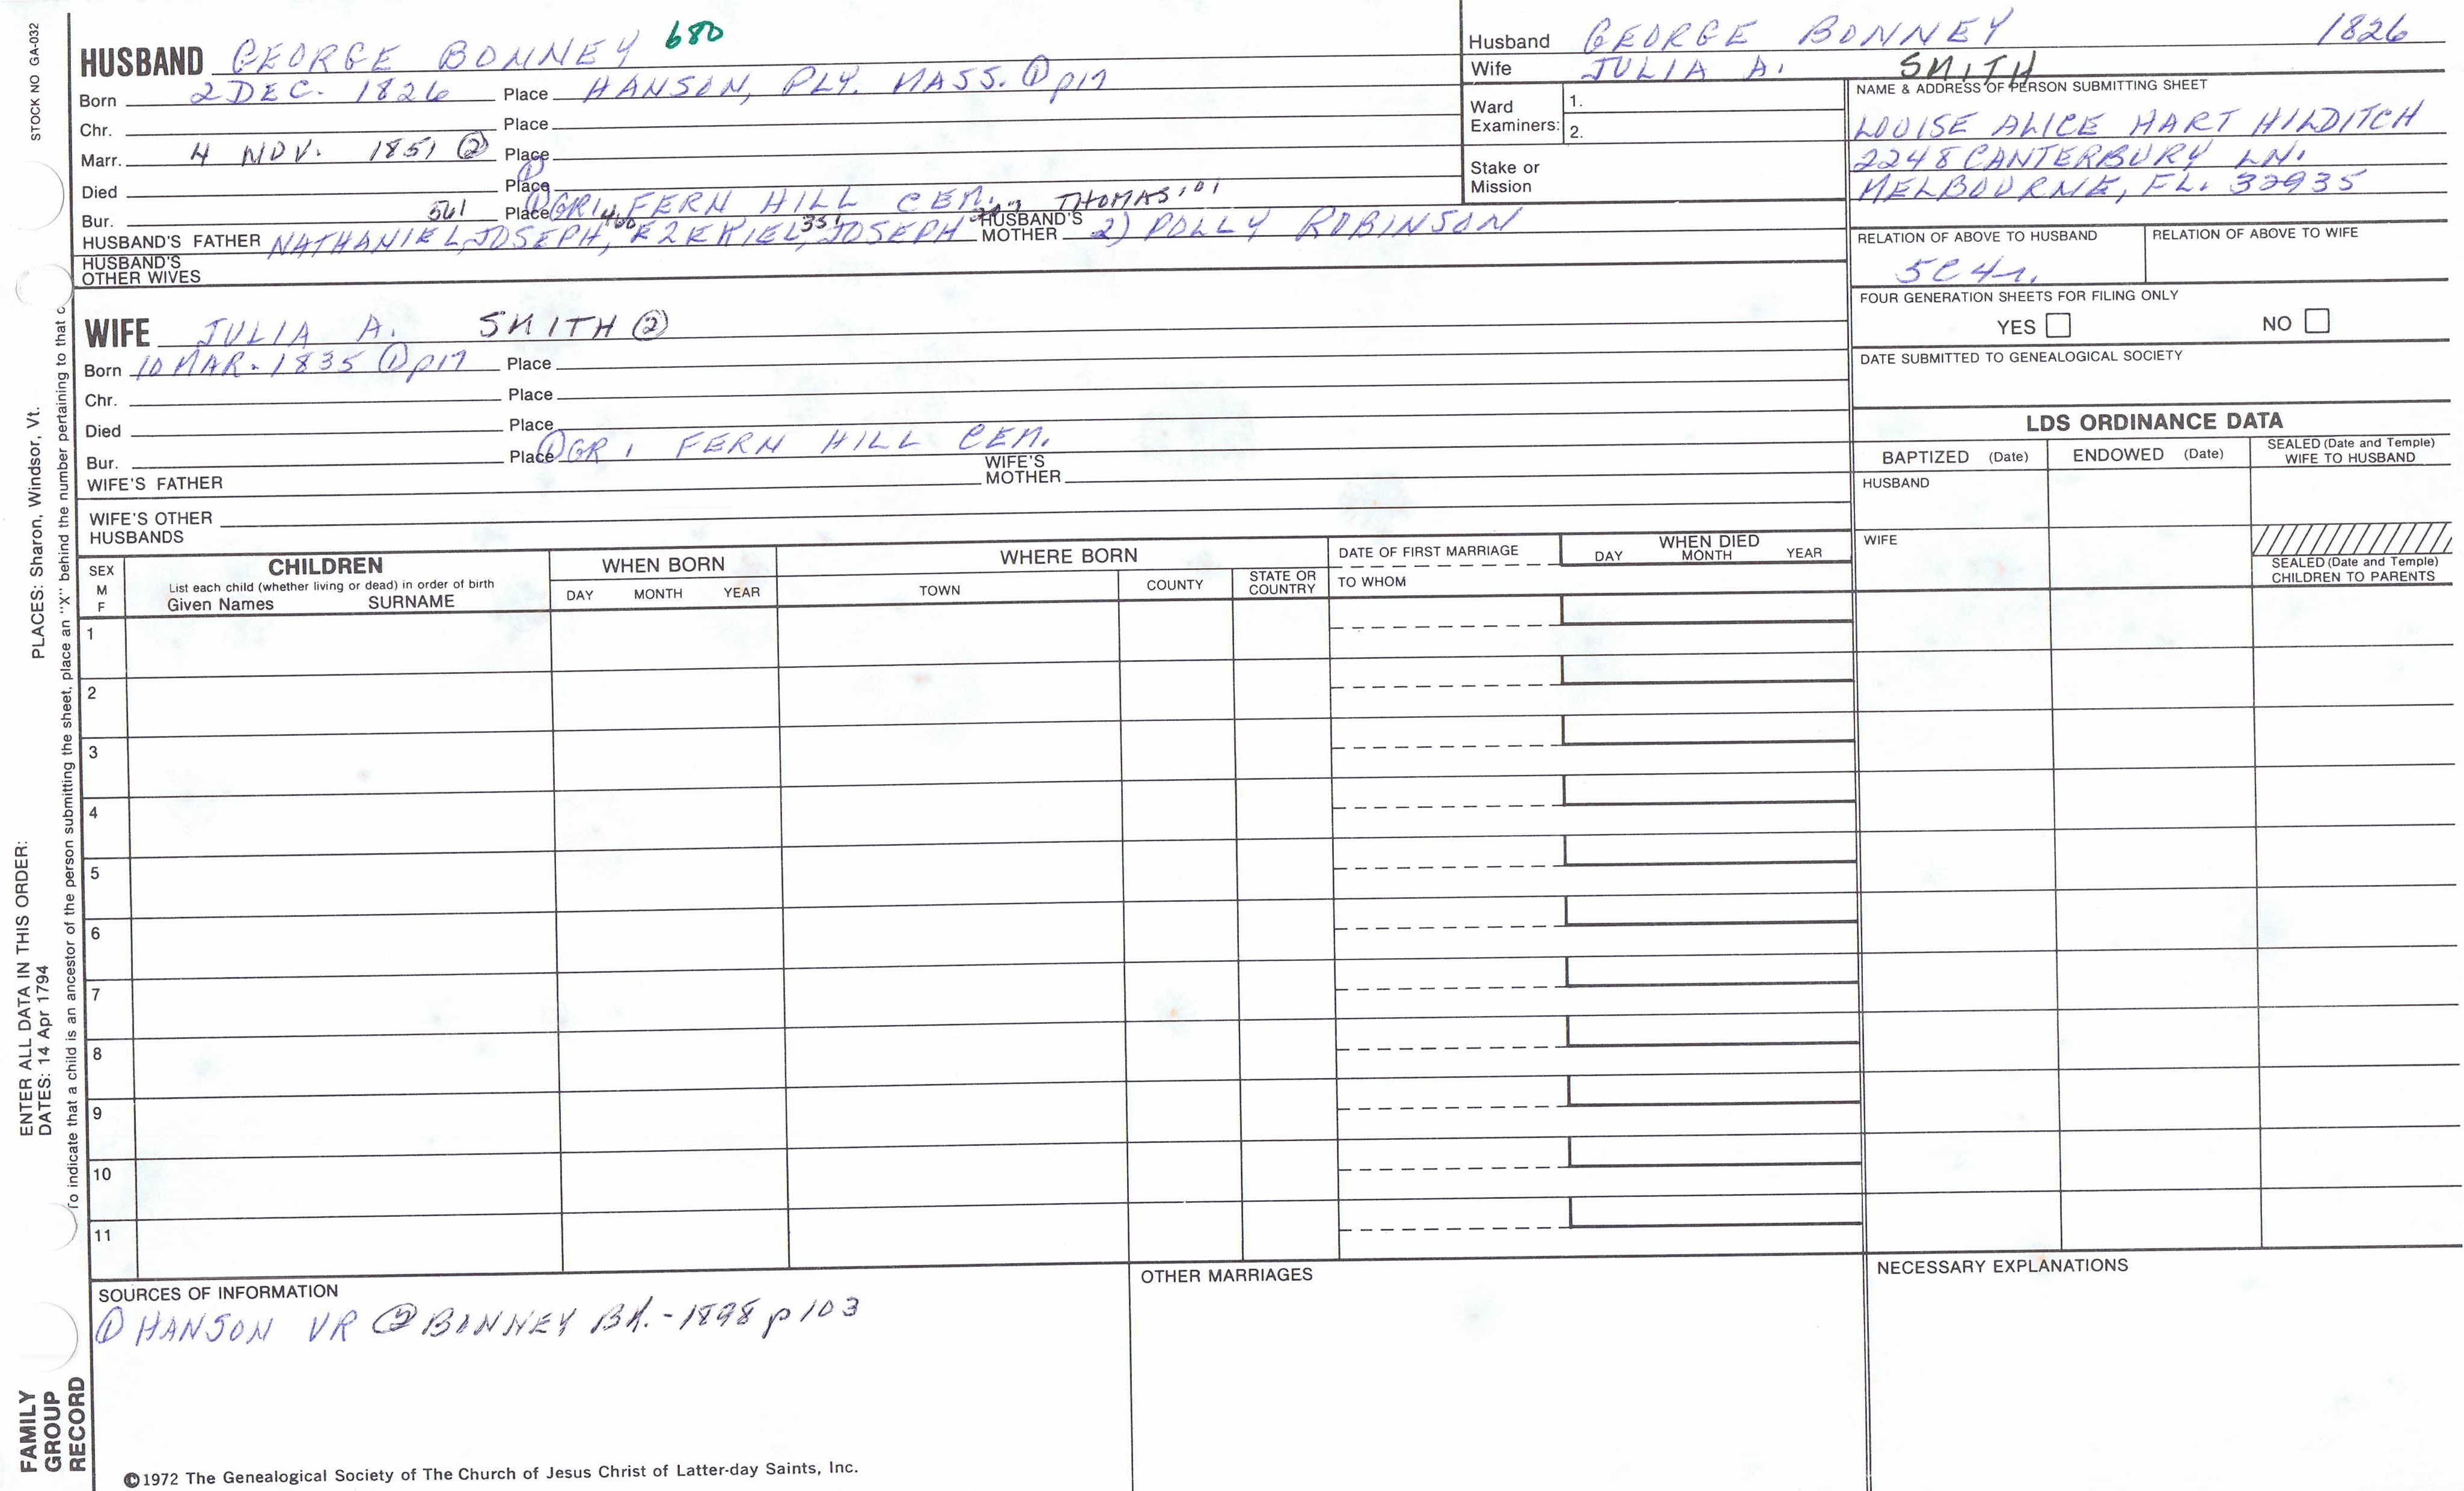 STOCK NO GA-032
HUSBAND GEORGE BONNEY 680
Born 2 DEC. 1826 Place HANSON, PLY. MASS. ① p17
Chr. Place
Marr. 4 NOV. 1851 ② Place
Died Place ①
Bur. Place ① GRI, FERN HILL CEM.
561 460 351 THOMAS 101
HUSBAND'S FATHER NATHANIEL, JOSEPH, EZEKIEL, JOSEPH HUSBAND'S MOTHER 2) POLLY ROBINSON
HUSBAND'S OTHER WIVES
WIFE JULIA A. SMITH ②
Born 10 MAR. 1835 ① p17 Place
Chr. Place
Died Place
Bur. Place ① GR, FERN HILL CEM.
WIFE'S FATHER WIFE'S MOTHER
WIFE'S OTHER HUSBANDS
Husband GEORGE BONNEY 1826
Wife JULIA A. SMITH
Ward Examiners: 1.
2.
Stake or Mission
NAME & ADDRESS OF PERSON SUBMITTING SHEET
LOUISE ALICE HART HILDITCH
2248 CANTERBURY LN.
MELBOURNE, FL. 32935
RELATION OF ABOVE TO HUSBAND RELATION OF ABOVE TO WIFE
5C4r.
FOUR GENERATION SHEETS FOR FILING ONLY
YES NO
DATE SUBMITTED TO GENEALOGICAL SOCIETY
LDS ORDINANCE DATA
BAPTIZED (Date) ENDOWED (Date) SEALED (Date and Temple) WIFE TO HUSBAND
HUSBAND
WIFE
SEALED (Date and Temple) CHILDREN TO PARENTS
SEX M F CHILDREN WHEN BORN WHERE BORN DATE OF FIRST MARRIAGE WHEN DIED
List each child (whether living or dead) in order of birth
Given Names SURNAME DAY MONTH YEAR TOWN COUNTY STATE OR COUNTRY TO WHOM DAY MONTH YEAR
1
2
3
4
5
6
7
8
9
10
11
SOURCES OF INFORMATION
① HANSON VR ② BONNEY BK. - 1898 p 103
OTHER MARRIAGES
NECESSARY EXPLANATIONS
©1972 The Genealogical Society of The Church of Jesus Christ of Latter-day Saints, Inc.
ENTER ALL DATA IN THIS ORDER:
DATES: 14 Apr 1794 PLACES: Sharon, Windsor, Vt.
To indicate that a child is an ancestor of the person submitting the sheet, place an "X" behind the number pertaining to that c
FAMILY
GROUP
RECORD